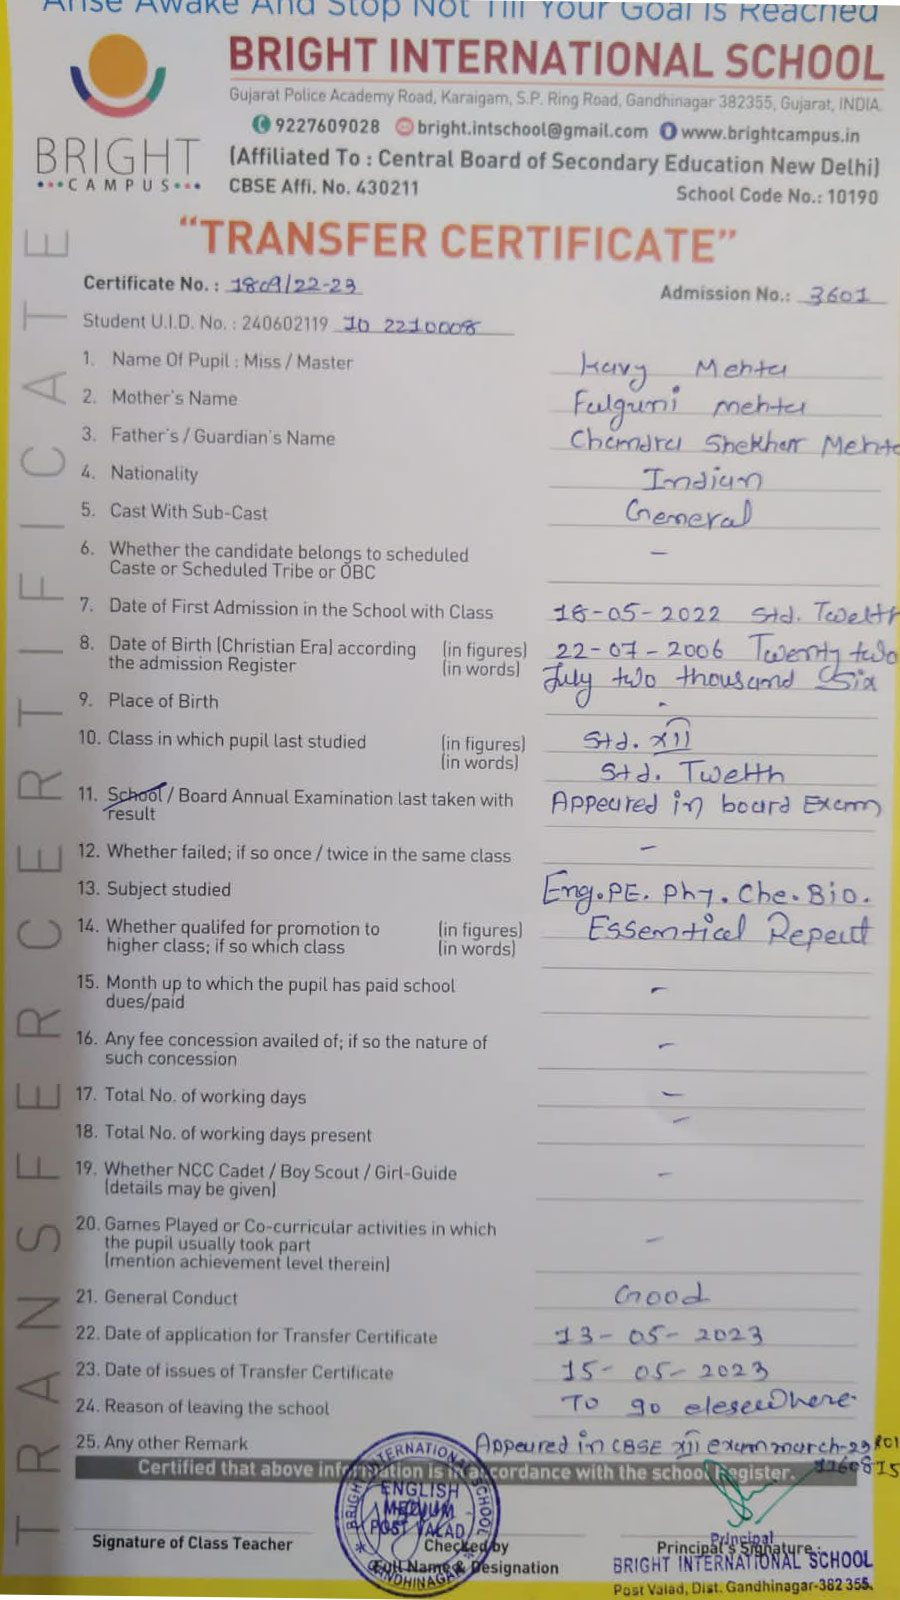 Arise Awake And Stop Not Till Your Goal Is Reached
BRIGHT
CAMPUS
BRIGHT INTERNATIONAL SCHOOL
Gujarat Police Academy Road, Karaigam, S.P. Ring Road, Gandhinagar 382355, Gujarat, INDIA.
9227609028 bright.intschool@gmail.com www.brightcampus.in
(Affiliated To : Central Board of Secondary Education New Delhi)
CBSE Affi. No. 430211 School Code No.: 10190
TRANSFER CERTIFICATE
"TRANSFER CERTIFICATE"
Certificate No. : 1809/22-23 Admission No.: 3601
Student U.I.D. No. : 240602119 ID 2210008
1. Name Of Pupil : Miss / Master Kavy Mehta
2. Mother's Name Falguni Mehta
3. Father's / Guardian's Name Chandra Shekhar Mehta
4. Nationality Indian
5. Cast With Sub-Cast General
6. Whether the candidate belongs to scheduled —
Caste or Scheduled Tribe or OBC
7. Date of First Admission in the School with Class 18-05-2022 Std. Twelth
8. Date of Birth (Christian Era) according (in figures) 22-07-2006 Twenty two
the admission Register (in words) July two thousand Six
9. Place of Birth -
10. Class in which pupil last studied (in figures) Std. XII
(in words) Std. Twelth
11. School / Board Annual Examination last taken with Appeared in board Exam
result
12. Whether failed; if so once / twice in the same class —
13. Subject studied Eng. PE. Phy. Che. Bio.
14. Whether qualifed for promotion to (in figures) Essential Repeat
higher class; if so which class (in words)
15. Month up to which the pupil has paid school —
dues/paid
16. Any fee concession availed of; if so the nature of —
such concession
17. Total No. of working days —
18. Total No. of working days present —
19. Whether NCC Cadet / Boy Scout / Girl-Guide —
(details may be given)
20. Games Played or Co-curricular activities in which
the pupil usually took part —
(mention achievement level therein)
21. General Conduct Good
22. Date of application for Transfer Certificate 13-05-2023
23. Date of issues of Transfer Certificate 15-05-2023
24. Reason of leaving the school To go elesewhere
25. Any other Remark Appeared in CBSE XII exam march-23
Certified that above information is in accordance with the school Register.
BRIGHT INTERNATIONAL SCHOOL
ENGLISH
MEDIUM
POST VALAD
GANDHINAGAR
Signature of Class Teacher Checked by Principal's Signature
Full Name & Designation
Principal
BRIGHT INTERNATIONAL SCHOOL
Post Valad, Dist. Gandhinagar-382 355.